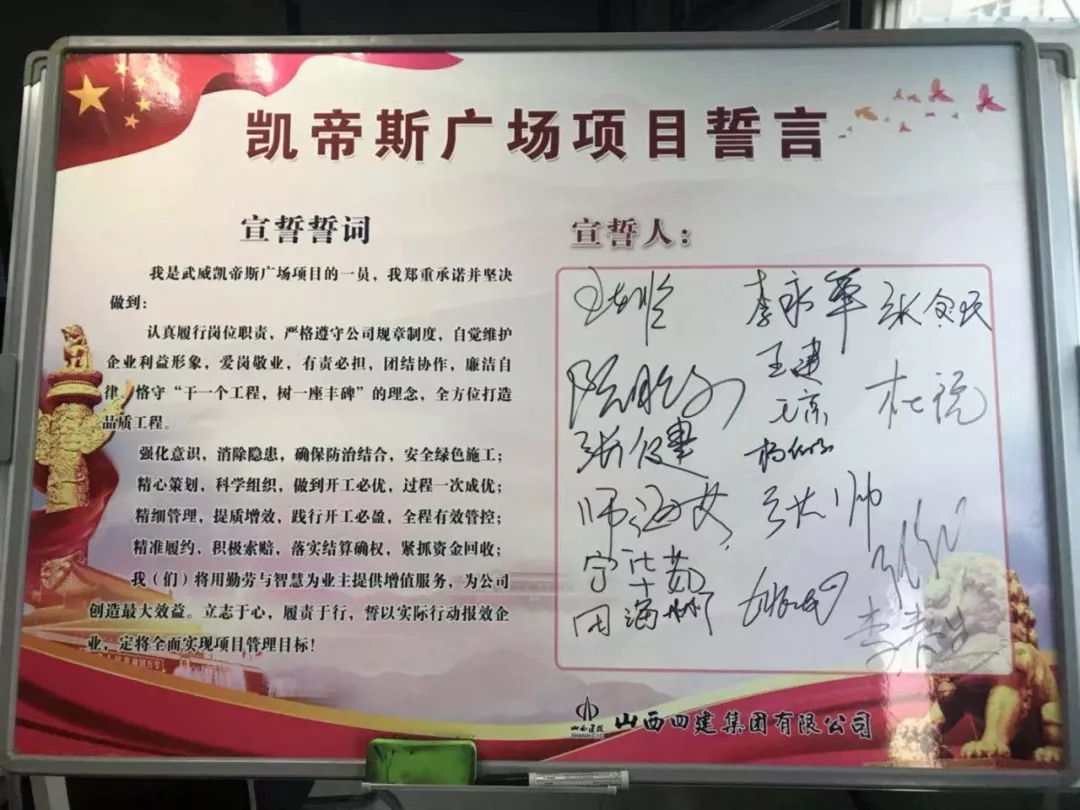 凯帝斯广场项目誓言
宣誓誓词
我是武威凯帝斯广场项目的一员，我郑重承诺并坚决
做到：
认真履行岗位职责，严格遵守公司规章制度，自觉维护
企业利益形象，爱岗敬业，有责必担，团结协作，廉洁自
律。恪守“干一个工程，树一座丰碑”的理念，全方位打造
品质工程。
强化意识，消除隐患，确保防治结合，安全绿色施工；
精心策划，科学组织，做到开工必优，过程一次成优；
精细管理，提质增效，践行开工必盈，全程有效管控；
精准履约，积极索赔，落实结算确权，紧抓资金回收；
我（们）将用勤劳与智慧为业主提供增值服务，为公司
创造最大效益。立志于心，履责于行，誓以实际行动报效企
业，定将全面实现项目管理目标！
宣誓人：
李永军
王建
张健
张大帅
山西建投
山西四建集团有限公司